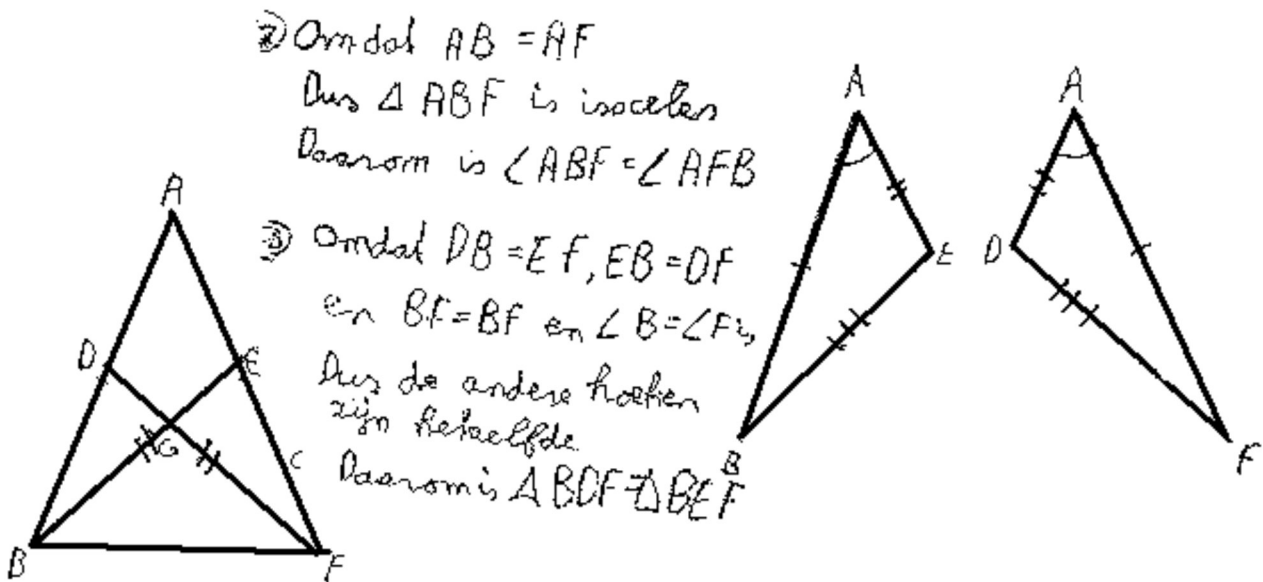 ② Omdat AB = AF
Dus Δ ABF is isoceles
Daarom is ∠ABF = ∠AFB
③ Omdat DB = EF, EB = DF
en BF = BF en ∠B = ∠F is,
Dus de andere hoeken
zijn hetzelfde
Daarom is Δ BDF = Δ BEF
A
D
E
G
C
B
F
A
E
B
A
D
F